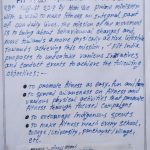 29th August 2019 by Hon'ble prime minister
with a view to make fitness an integral part
of our daily lives. The mission of the movement
is to bring about behavioural changes and
move towards a more physically active lifestyle.
Towards achieving this mission, Fit India
proposes to undertake various initiatives
and conduct events to achieve the following
objectives:-
• To promote fitness as easy, fun and free.
• To spread awareness on fitness and
various physical activities that promote
fitness through focused campaigns.
• To encourage indigenous sports
• To make fitness reach every school,
college/university, panchayat/village,
etc.